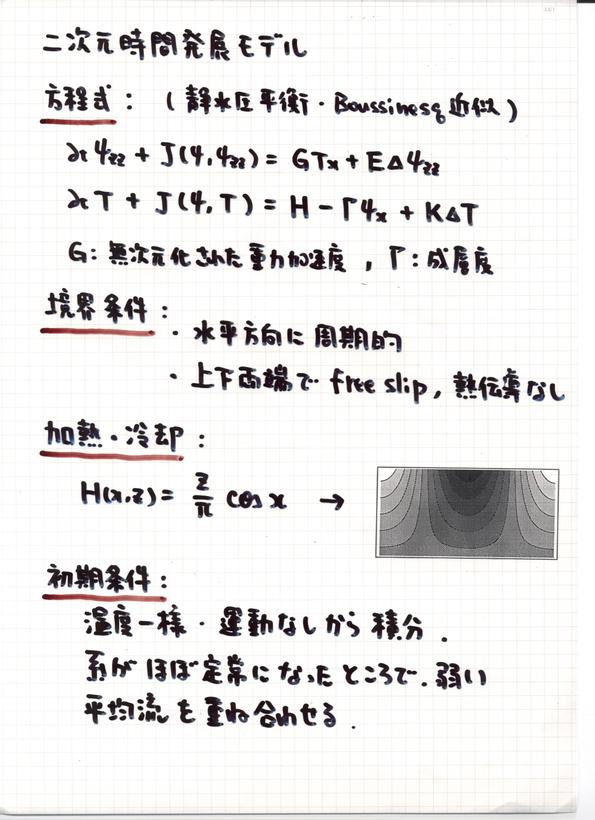 二次元時間発展モデル
方程式: (静水圧平衡・Boussinesq近似)
∂t ψzz + J(ψ,ψzz) = GTx + EΔψzz
∂t T + J(ψ,T) = H - Γψx + KΔT
G: 無次元化された重力加速度, Γ: 成層度
境界条件:
・水平方向に周期的
・上下両端で free slip, 熱伝導なし
加熱・冷却:
H(x,z) = z/π cos x →
初期条件:
温度一様・運動なしから積分.
系がほぼ定常になったところで、弱い
平均流を重ね合わせる.